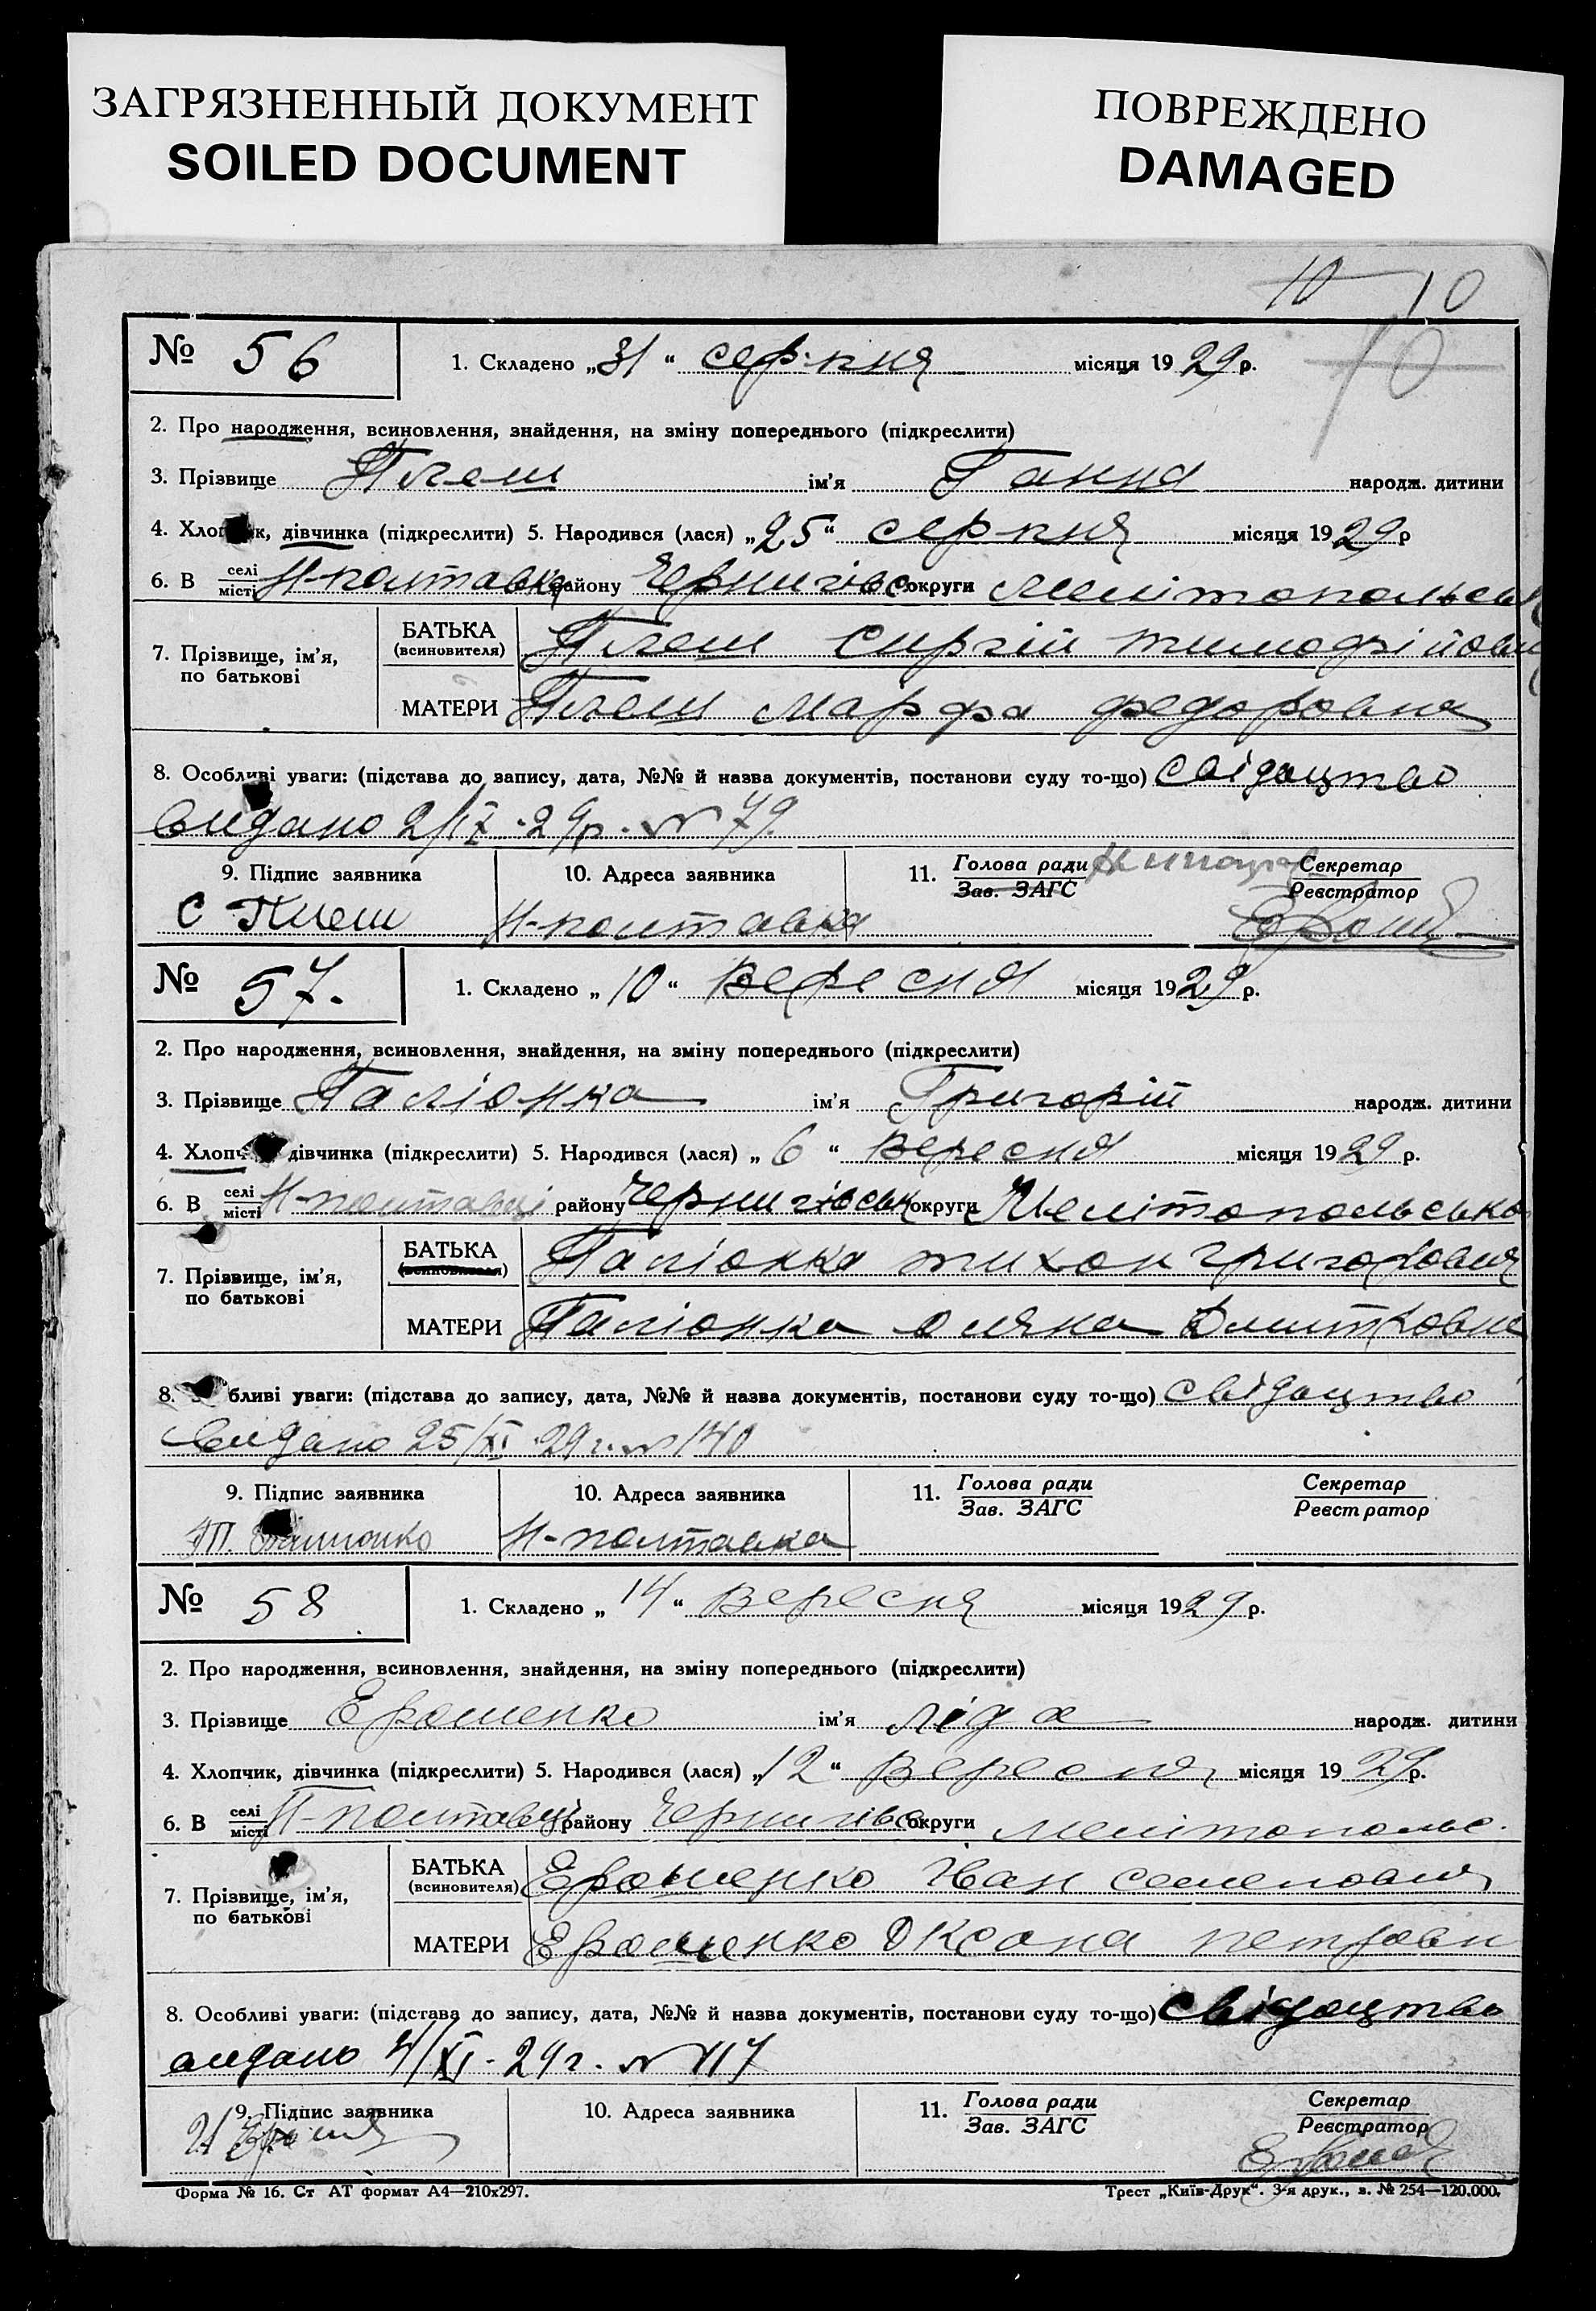 ЗАГРЯЗНЕННЫЙ ДОКУМЕНТ
SOILED DOCUMENT
ПОВРЕЖДЕНО
DAMAGED
10 10
10
№ 56 1. Складено „31“ серпня місяця 1929 р.
2. Про народження, всиновлення, знайдення, на зміну попереднього (підкреслити)
3. Прізвище Плеш ім'я Ганна народж. дитини
4. Хлопчик, дівчинка (підкреслити) 5. Народився (лася) „25“ серпня місяця 1929 р
6. В селі місті Н-полтавка району Чернигівс округи Мелітопольськ
7. Прізвище, ім'я, по батькові
БАТЬКА (всиновителя) Плеш Сиргій тимофійович
МАТЕРИ Плеш Марфа федоровна
8. Особливі уваги: (підстава до запису, дата, №№ й назва документів, постанови суду то-що) свідоцтво
видано 2/IX-29р. № 79.
9. Підпис заявника 10. Адреса заявника 11. Голова ради Зав. ЗАГС Секретар Реєстратор
С Плеш Н-полтавка
№ 57. 1. Складено „10“ Вересня місяця 1929 р.
2. Про народження, всиновлення, знайдення, на зміну попереднього (підкреслити)
3. Прізвище Паліонка ім'я Григорій народж. дитини
4. Хлопч дівчинка (підкреслити) 5. Народився (лася) „6“ Вересня місяця 1929 р.
6. В селі місті Н-полтавці району Чернигівськ округи Мелітопольсько
7. Прізвище, ім'я, по батькові
БАТЬКА (всиновителя) Паліонка тихон григорович
МАТЕРИ Паліонка Оляна Дмитровна
8. бливі уваги: (підстава до запису, дата, №№ й назва документів, постанови суду то-що) свідоцтво
видано 25/XI-29 г. № 140
9. Підпис заявника 10. Адреса заявника 11. Голова ради Зав. ЗАГС Секретар Реєстратор
Н-полтавка
№ 58 1. Складено „14“ Вересня місяця 1929 р.
2. Про народження, всиновлення, знайдення, на зміну попереднього (підкреслити)
3. Прізвище Ерошенко ім'я Ліда народж. дитини
4. Хлопчик, дівчинка (підкреслити) 5. Народився (лася) „12“ Вересня місяця 1929 р.
6. В селі місті Н-полтавці району Чернигівс округи Мелітопольс.
7. Прізвище, ім'я, по батькові
БАТЬКА (всиновителя) Ерошенко Іван Семенович
МАТЕРИ Ерошенко Оксана петровн
8. Особливі уваги: (підстава до запису, дата, №№ й назва документів, постанови суду то-що) свідоцтво
видано 4/XI-29 г. № 117
9. Підпис заявника 10. Адреса заявника 11. Голова ради Зав. ЗАГС Секретар Реєстратор
Форма № 16. Ст АТ формат А4—210х297. Трест „Київ-Друк“. 3-я друк., з. № 254—120.000.